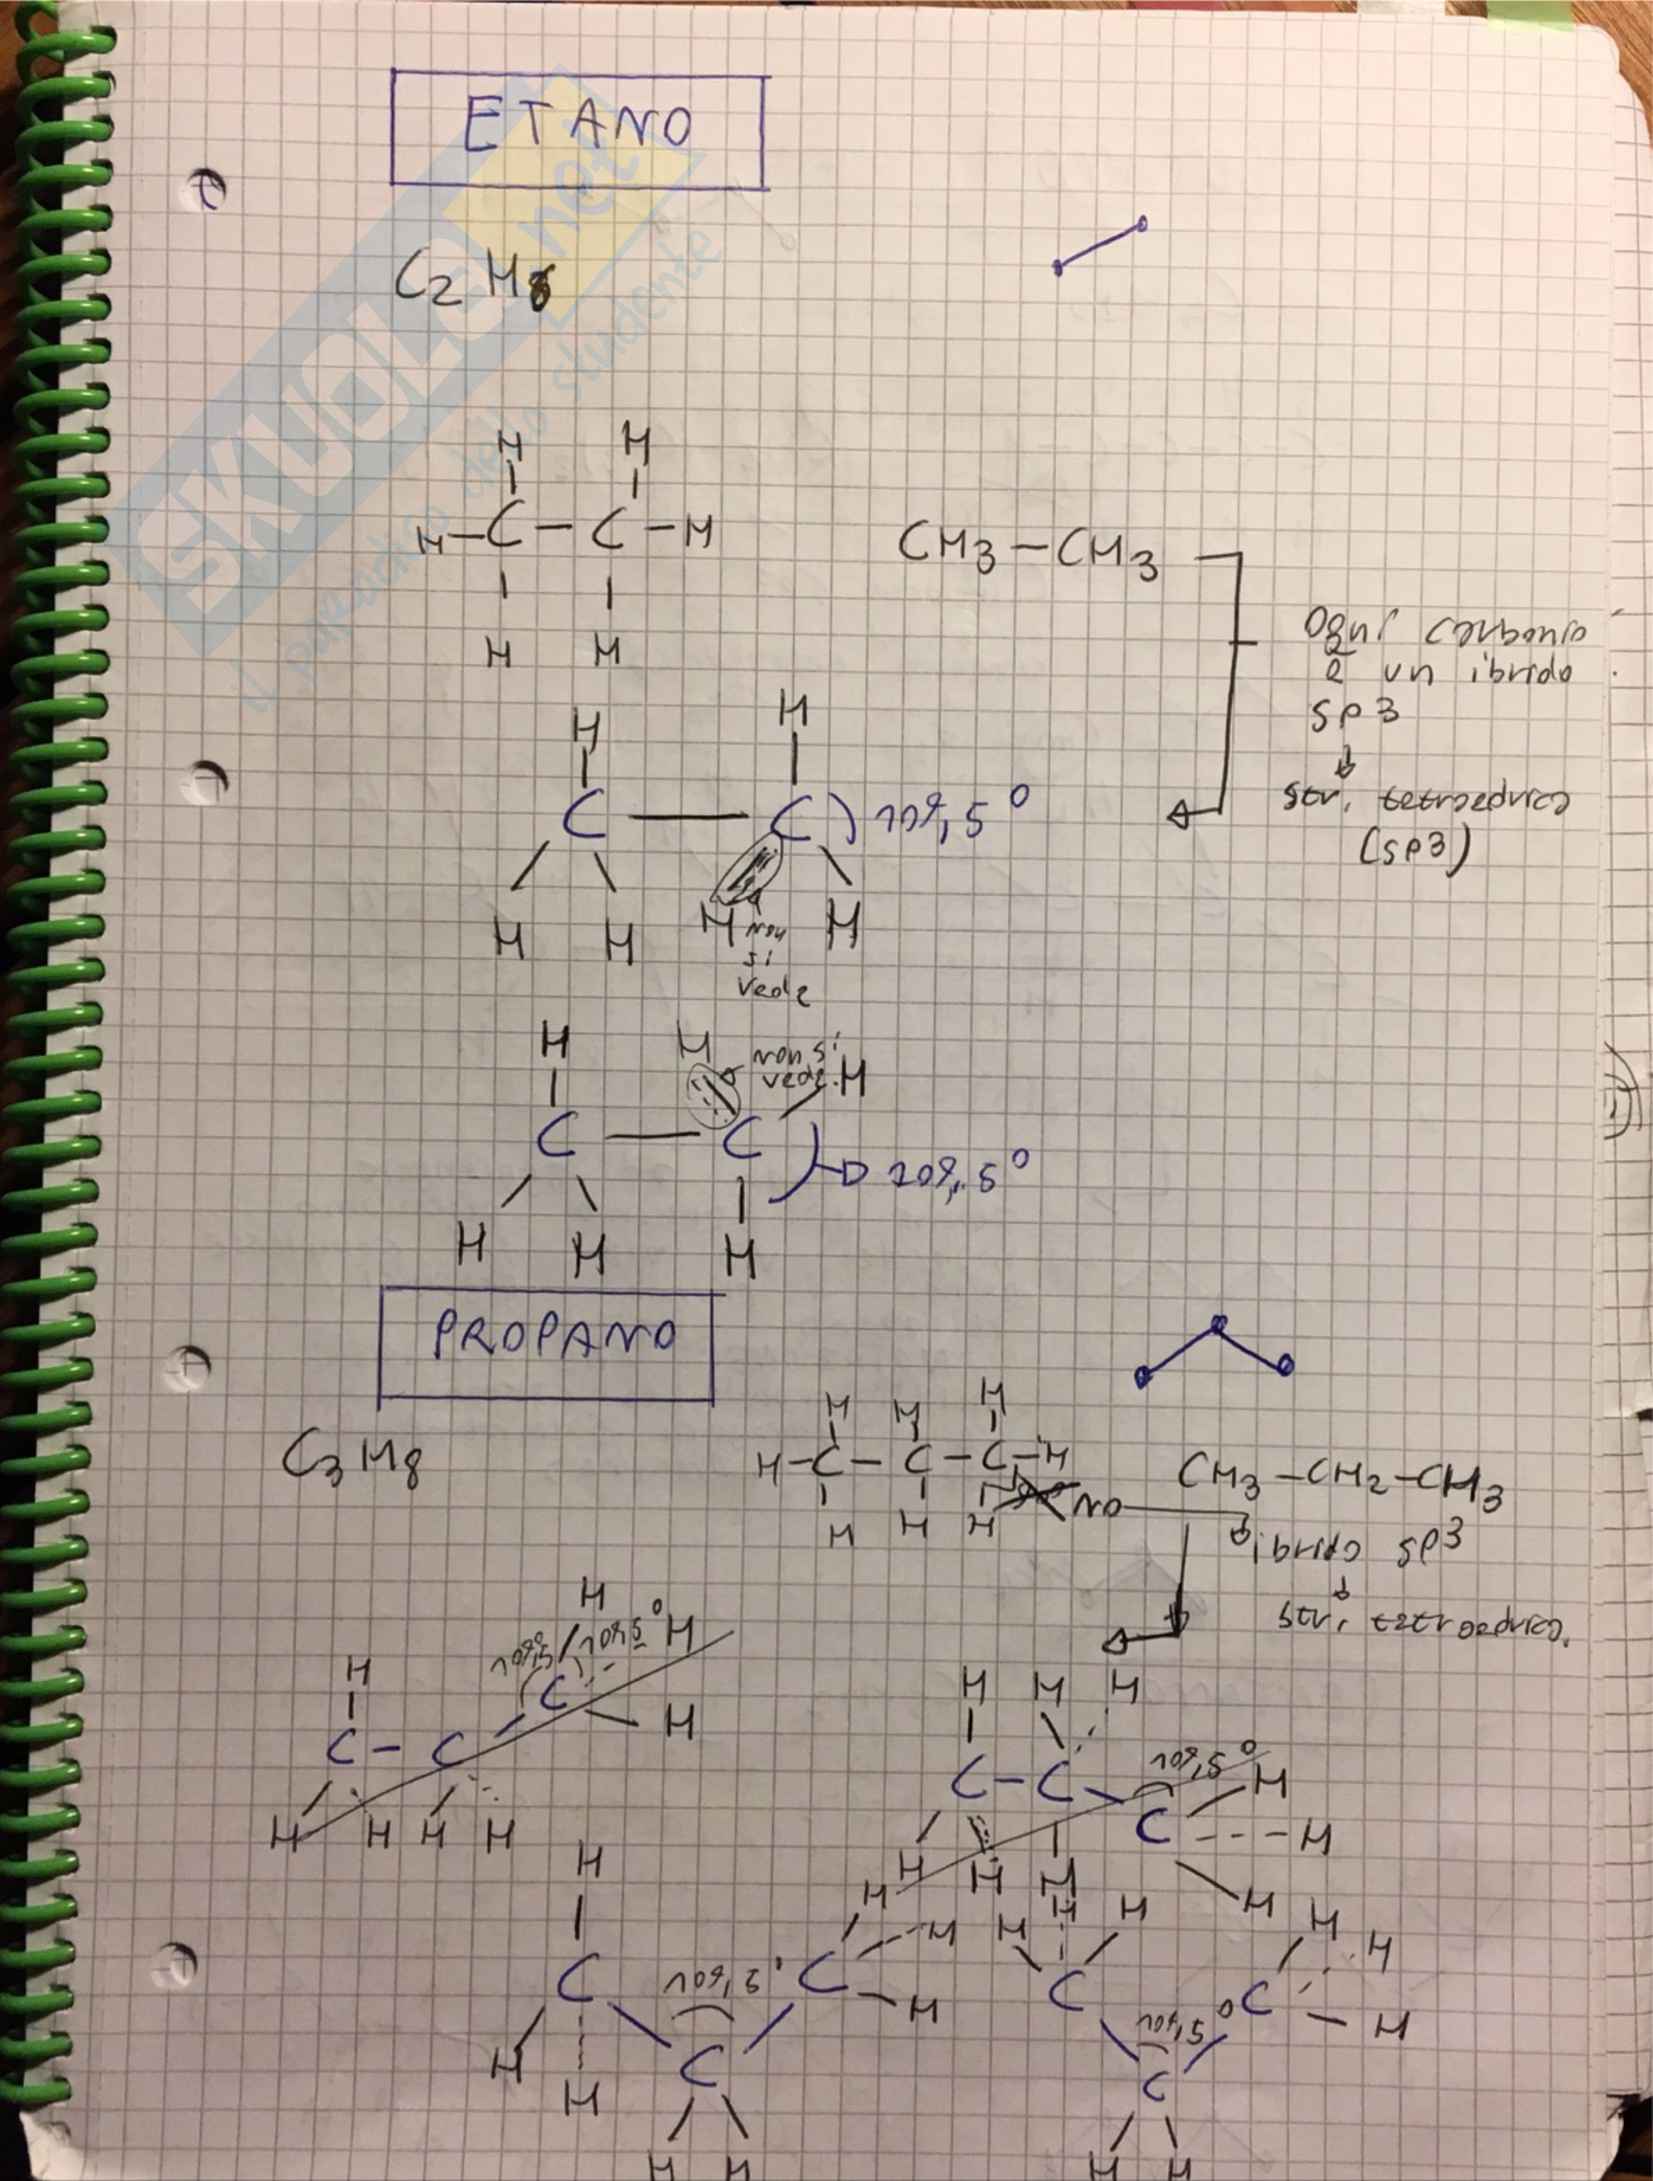 ETANO
C2H6
SKUOLA.net
il paradiso dello studente
H H
H-C-C-H
H H
CH3-CH3
Ogni carbonio
è un ibrido
sp3
str. tetraedrica
(sp3)
H H
C — C 109,5°
H H H H
non
si
vede
H H non si
vede H
C — C
109,5°
H H H
PROPANO
C3H8
H H H
H-C-C-C-H
H H H
NO
CH3-CH2-CH3
ibrido sp3
str. tetraedrica.
H
109,5° 109,5° H
H C
C-C H
H H H H
H H H
C-C 109,5° H
C ---H
H H H H
H
C 109,5° C
H H H
H H C
H H
H H H
C C
H H H
109,5°
C
H H